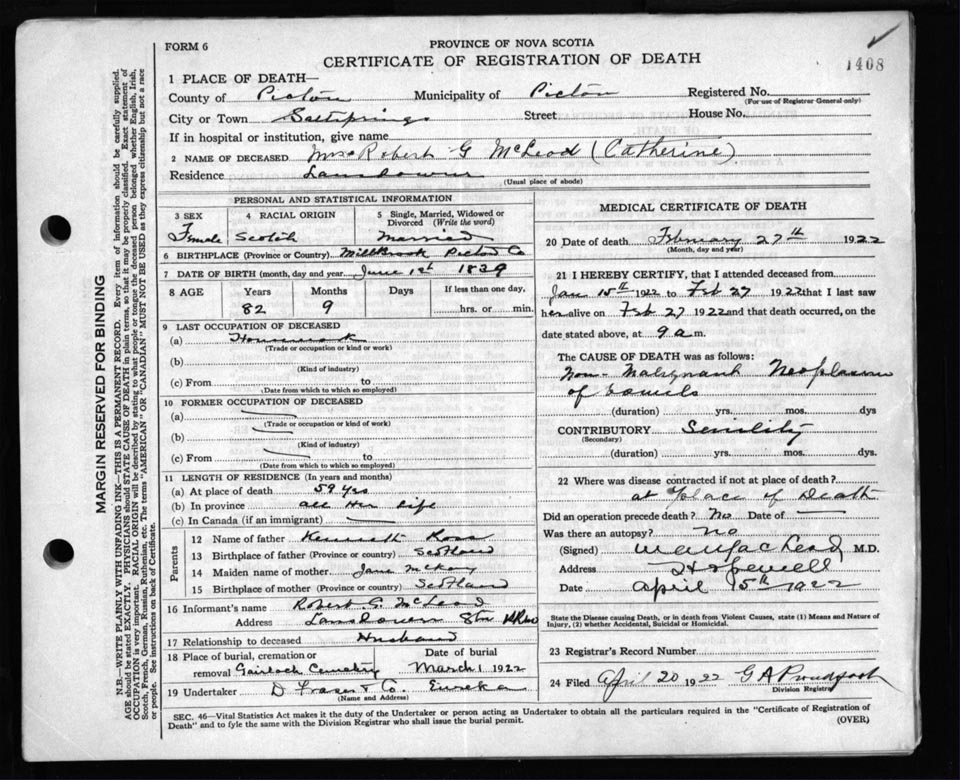 FORM 6
PROVINCE OF NOVA SCOTIA
CERTIFICATE OF REGISTRATION OF DEATH
1408
1 PLACE OF DEATH—
County of Pictou Municipality of Pictou Registered No.
(For use of Registrar General only)
City or Town Saltsprings Street House No.
If in hospital or institution, give name
2 NAME OF DECEASED Mrs Robert G McLeod (Catherine)
Residence Lansdowne
(Usual place of abode)
PERSONAL AND STATISTICAL INFORMATION
3 SEX
Female
4 RACIAL ORIGIN
Scotch
5 Single, Married, Widowed or Divorced (Write the word)
Married
6 BIRTHPLACE (Province or Country) Millbrook Pictou Co
7 DATE OF BIRTH (month, day and year June 1st 1839
8 AGE Years Months Days If less than one day,
82 9 hrs. or min.
9 LAST OCCUPATION OF DECEASED
(a) Housework
(Trade or occupation or kind or work)
(b)
(Kind of industry)
(c) From to
(Date from which to which so employed)
10 FORMER OCCUPATION OF DECEASED
(a)
(Trade or occupation or kind of work)
(b)
(Kind of industry)
(c) From to
(Date from which to which so employed)
11 LENGTH OF RESIDENCE (In years and months)
(a) At place of death 59 yrs
(b) In province all her life
(c) In Canada (if an immigrant)
Parents
12 Name of father Kenneth Ross
13 Birthplace of father (Province or country) Scotland
14 Maiden name of mother Jane McKay
15 Birthplace of mother (Province or country) Scotland
16 Informant's name Robert G. McLeod
Address Lansdowne Stn
17 Relationship to deceased Husband
18 Place of burial, cremation or removal Gairloch Cemetry
Date of burial
March 1 1922
19 Undertaker D Fraser & Co. Eureka
(Name and Address)
MEDICAL CERTIFICATE OF DEATH
20 Date of death February 27th 1922
(Month, day and year)
21 I HEREBY CERTIFY, that I attended deceased from
Jan 15th 1922 to Feb 27 1922 that I last saw
her alive on Feb 27 1922 and that death occurred, on the
date stated above, at 9 a m.
The CAUSE OF DEATH was as follows:
Non-Malignant Neoplasm
of bowels
(duration) yrs. mos. dys
CONTRIBUTORY Senility
(Secondary)
(duration) yrs. mos. dys.
22 Where was disease contracted if not at place of death?
at place of Death
Did an operation precede death? No Date of
Was there an autopsy? no
(Signed) MacLeod M.D.
Address Hopewell
Date April 15th 1922
State the Disease causing Death, or in death from Violent Causes, state (1) Means and Nature of Injury, (2) whether Accidental, Suicidal or Homicidal.
23 Registrar's Record Number
24 Filed April 20 1922 G A Proudfoot
Division Registrar
SEC. 46—Vital Statistics Act makes it the duty of the Undertaker or person acting as Undertaker to obtain all the particulars required in the "Certificate of Registration of
Death" and to fyle the same with the Division Registrar who shall issue the burial permit.
(OVER)
MARGIN RESERVED FOR BINDING
N.B.—WRITE PLAINLY WITH UNFADING INK—THIS IS A PERMANENT RECORD. Every item of information should be carefully supplied.
AGE should be stated EXACTLY. PHYSICIANS should STATE CAUSE OF DEATH in plain terms, so that it may be properly classified. Exact statement of
OCCUPATION is very important. RACIAL ORIGIN will be described by stating to what people or tongue the deceased person belonged whether English, Irish,
Scotch, French, German, Russian, Ruthenian, etc. The terms "AMERICAN" OR "CANADIAN" MUST NOT BE USED as they express citizenship but not a race
or people. See instructions on back of Certificate.